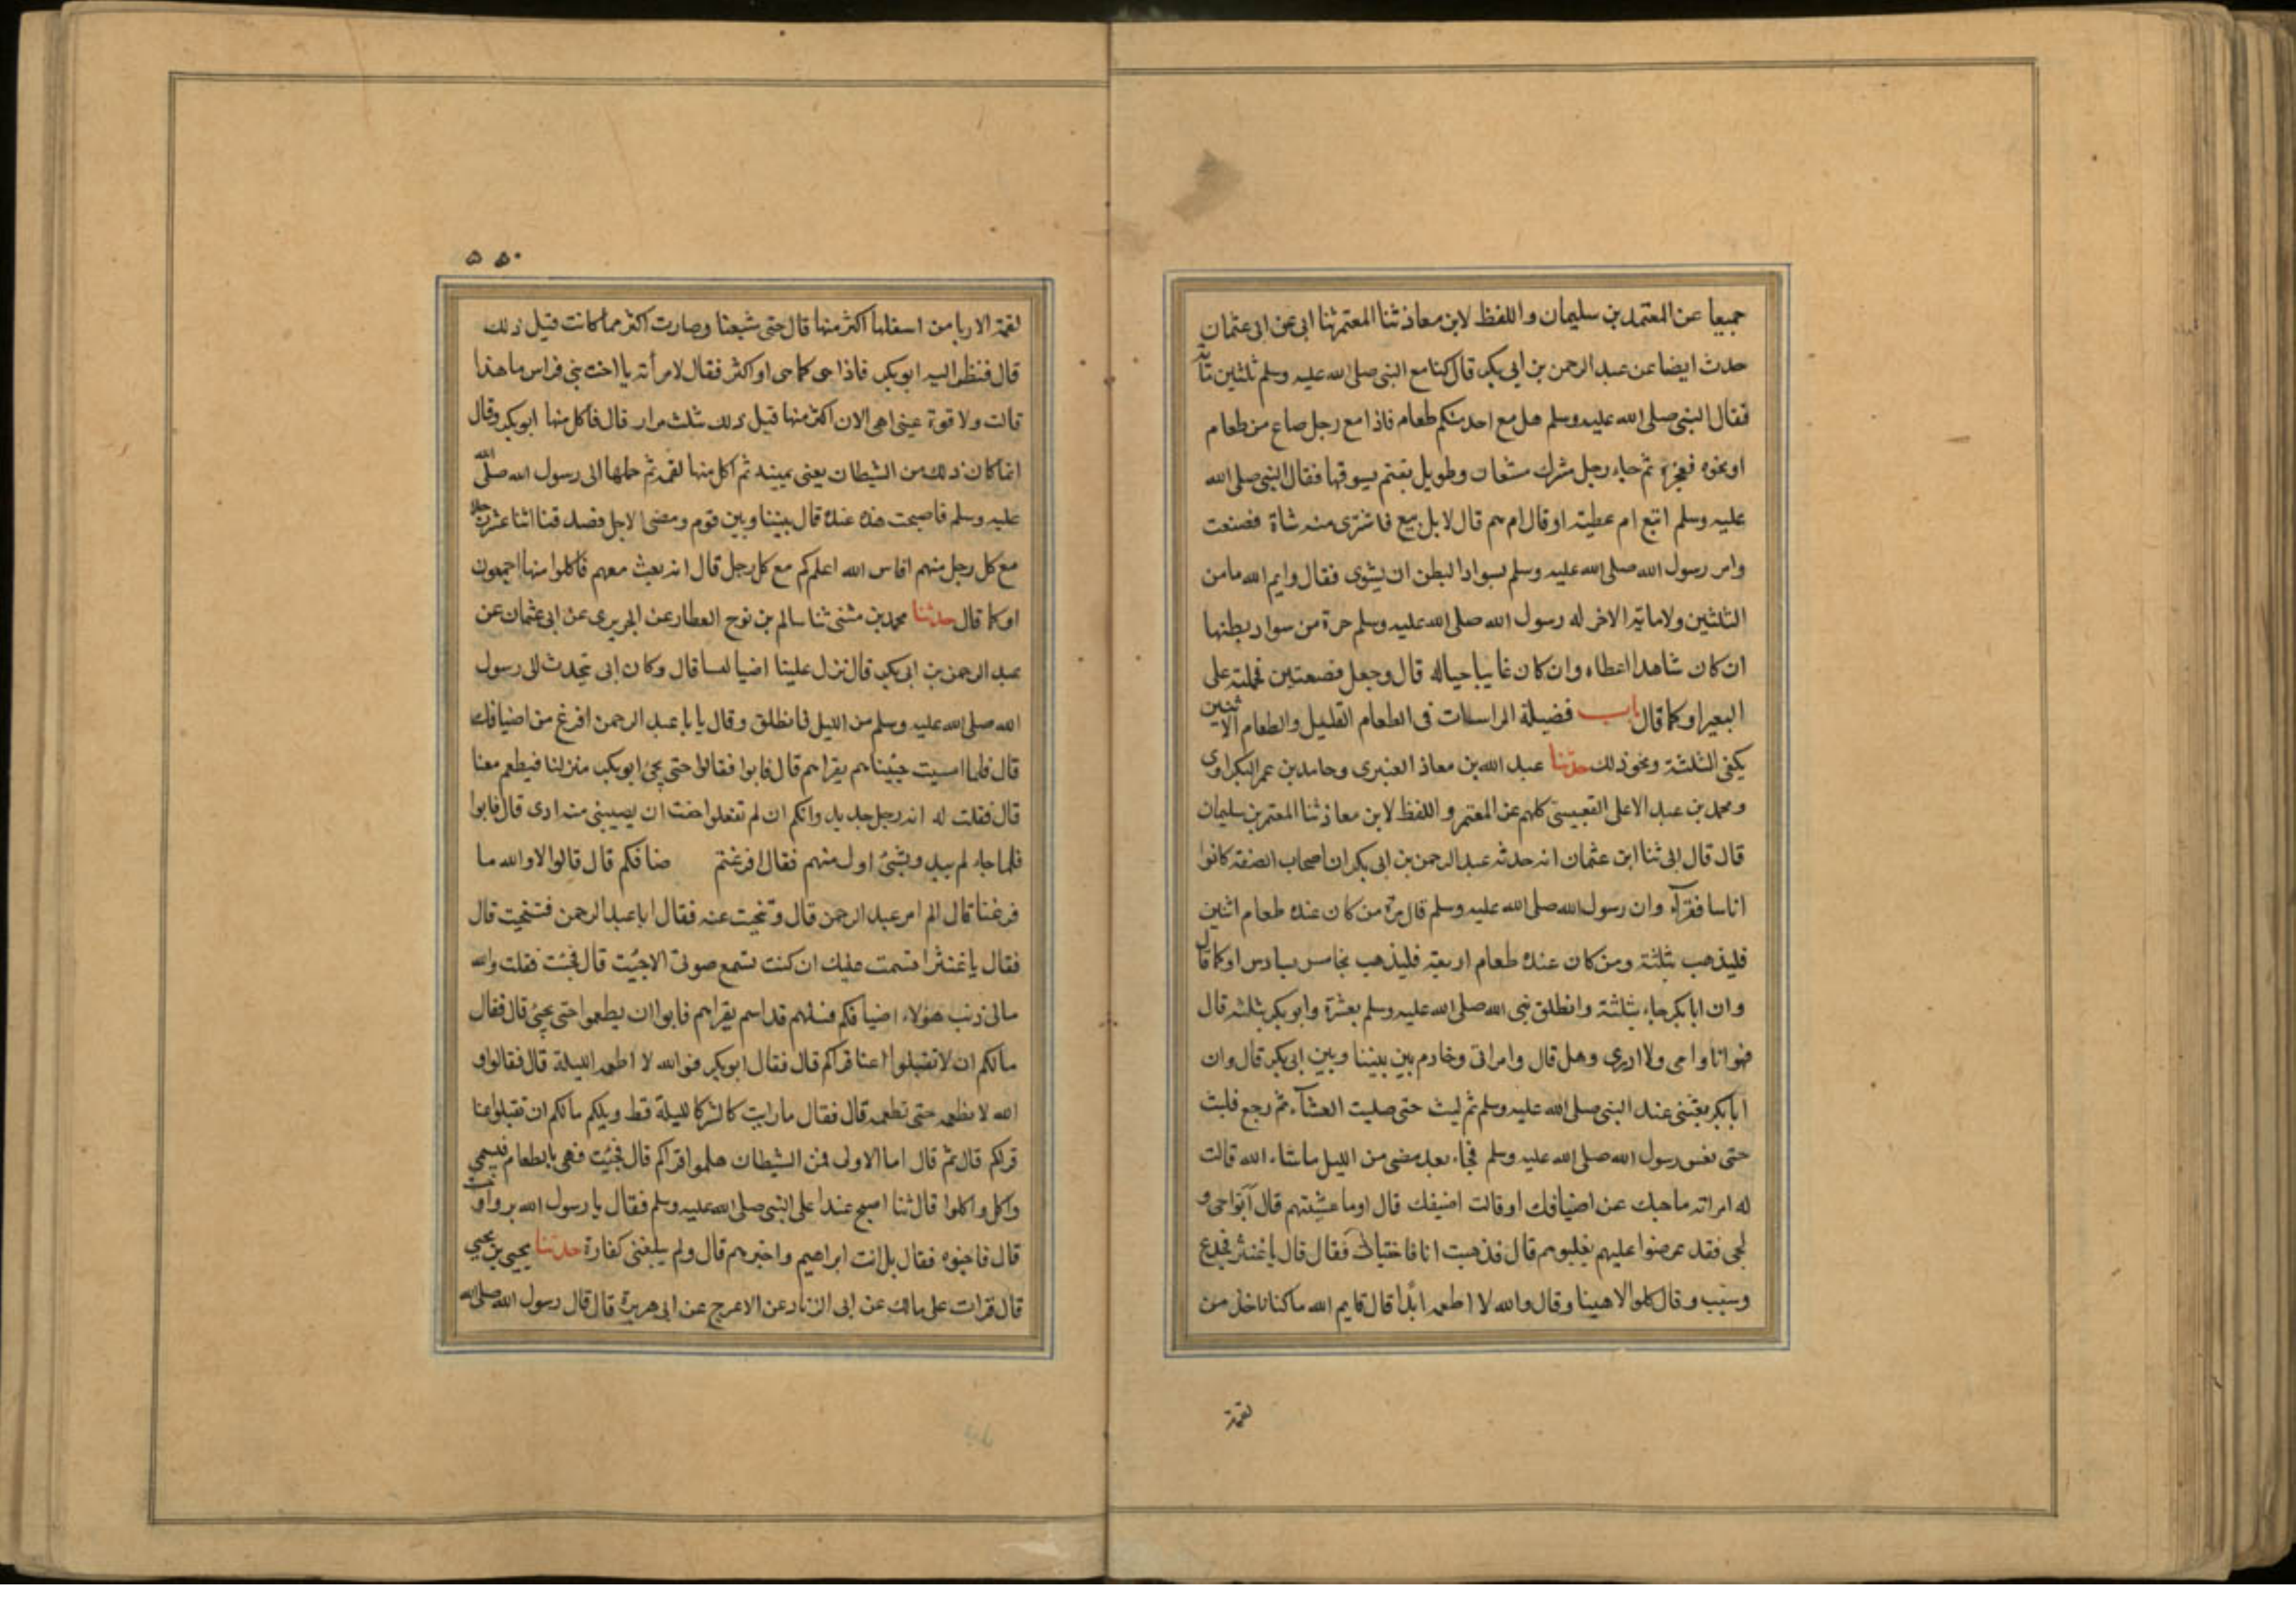 جميعا عن المعتمد بن سليمان واللفظ لابن معاذ ثنا المعتمر ثنا ابى عن ابى عثمان
حدث ايضا عن عبد الرحمن بن ابى بكر قال كنا مع النبى صلى الله عليه وسلم ثلثين مائة
فقال النبى صلى الله عليه وسلم هل مع احد منكم طعام فاذا مع رجل صاع من طعام
او نحوه فعجزه ثم جاء رجل مشرك مشعان وطويل بغنم يسوقها فقال النبى صلى الله
عليه وسلم ابتع ام عطية او قال ام هم قال لا بل بيع فاشترى منه شاة فصنعت
وامر رسول الله صلى الله عليه وسلم بسواد البطن ان يشوى فقال وايم الله ما من
الثلثين ولا ماية الاخر له رسول الله صلى الله عليه وسلم حزة من سواد بطنها
ان كان شاهدا اعطاه وان كان غايبا خباله قال وجعل قصعتين فحملته على
البعير او كما قال باب فضيلة المراسلات فى الطعام القليل والطعام الاثنين
يكفى الثلثة ونحو ذلك حدثنا عبد الله بن معاذ العنبرى وحامد بن عمر البكراوى
ومحمد بن عبد الاعلى القعيسى كلهم عن المعتمر واللفظ لابن معاذ ثنا المعتمر بن سليمان
قال قال ابى ثنا ابن عثمان انه حدثه عبد الرحمن بن ابى بكر ان اصحاب الصفة كانوا
اناسا فقرآء وان رسول الله صلى الله عليه وسلم قال مرة من كان عنده طعام اثنين
فليذهب بثلثة ومن كان عنده طعام اربعة فليذهب بخامس بسادس او كما قال
وان ابا بكر جاء بثلثة وانطلق نبى الله صلى الله عليه وسلم بعشرة وابو بكر بثلثة قال
فهو انا وامى ولا ادرى وهل قال وامراتى وخادم بين بيننا وبين ابى بكر قال وان
ابا بكر تعشى عند النبى صلى الله عليه وسلم ثم لبث حتى صليت العشآء ثم رجع فلبث
حتى نعس رسول الله صلى الله عليه وسلم فجاء بعد مضى من الليل ماشاء الله قالت
له امراته ما حبك عن اضيافك او قالت اضيفك قال اوما عشيتهم قال آبوا حى و
لجى فقد عرضوا عليهم يغلبوهم قال فذهبت انا فاختبات فقال قال يا غنثر فجدع
وسب وقال كلوا لا هنينا وقال والله لا اطعمه ابدا قال قايم الله ما كنا ناخذ من
لقمة
٥٥٠
لقمة الا ربا من اسفلها اكثر منها قال حتى شبعنا وصارت اكثر مما كانت قبل ذلك
قال فنظر اليه ابو بكر فاذا هى كما هى او اكثر فقال لامرأته يا اخت بنى فراس ما هذا
قالت ولا قوة عينى اهى الان اكثر منها قبل ذلك بثلث مرار قال فاكل منها ابو بكر وقال
انما كان ذلك من الشيطان يعنى يمينه ثم اكل منها لقمة ثم حملها الى رسول الله صلى الله
عليه وسلم فاصبحت هذه عنده قال بيننا وبين قوم ومضى الاجل فصد قنا اثنا عشر رجلا
مع كل رجل منهم اناس الله اعلم كم مع كل رجل قال انه بعث معهم فاكلوا منها اجمعون
او كما قال حدثنا محمد بن مثنى ثنا سالم بن نوح العطار عن الجريرى عن ابى عثمان عن
عبد الرحمن بن ابى بكر قال نزل علينا اضيا لسا قال وكان ابى يتحدث الى رسول
الله صلى الله عليه وسلم من الليل فانطلق وقال يا با عبد الرحمن افرغ من اضيافك
قال فلما امسيت جئيناهم بقراهم قال فابوا فقالوا حتى يجئ ابو بكر منزلنا فيطعم معنا
قال فقلت له انه رجل جديد وانكم ان لم تفعلوا خفت ان يصيبنى منه ادى قال فابوا
فلما جاء لم يبد وبشئ اول منهم فقال افرغتم ضنافكم قال قالوا لا والله ما
فرغنا قال الم امر عبد الرحمن قال وتنحيت عنه فقال ابا عبد الرحمن فتنحيت قال
فقال يا غنثرا قسمت عليك ان كنت تسمع صوتى الا جئت قال فجئت فقلت والله
مالى ذنب هؤلاء اضيافكم فسلهم قد اسم بقراهم فابوا ان يطعموا حتى يجئ قال فقال
مالكم ان لا تقبلوا اعنا قراكم قال فقال ابو بكر فوالله لا اطعمه الليلة قال فقالوا و
الله لا نطعمه حتى تطعمه قال فقال ما رايت كالشر كالليلة قط ويلكم مالكم ان تقبلوا عنا
قراكم قال ثم قال اما الاولى فمن الشيطان هلموا قراكم قال فجئت فهى بالطعام فيسمى
واكل واكلوا قال ثنا اصبح عندا على النبى صلى الله عليه وسلم فقال يا رسول الله بروا و
قال فاخبوه فقال بل انت ابراهيم واخبرهم قال ولم يبلغنى كفارة حدثنا يحيى بن يحيى
قال قرات على مالك عن ابى الزناد عن الاعرج عن ابى هريرة قال قال رسول الله صلى الله